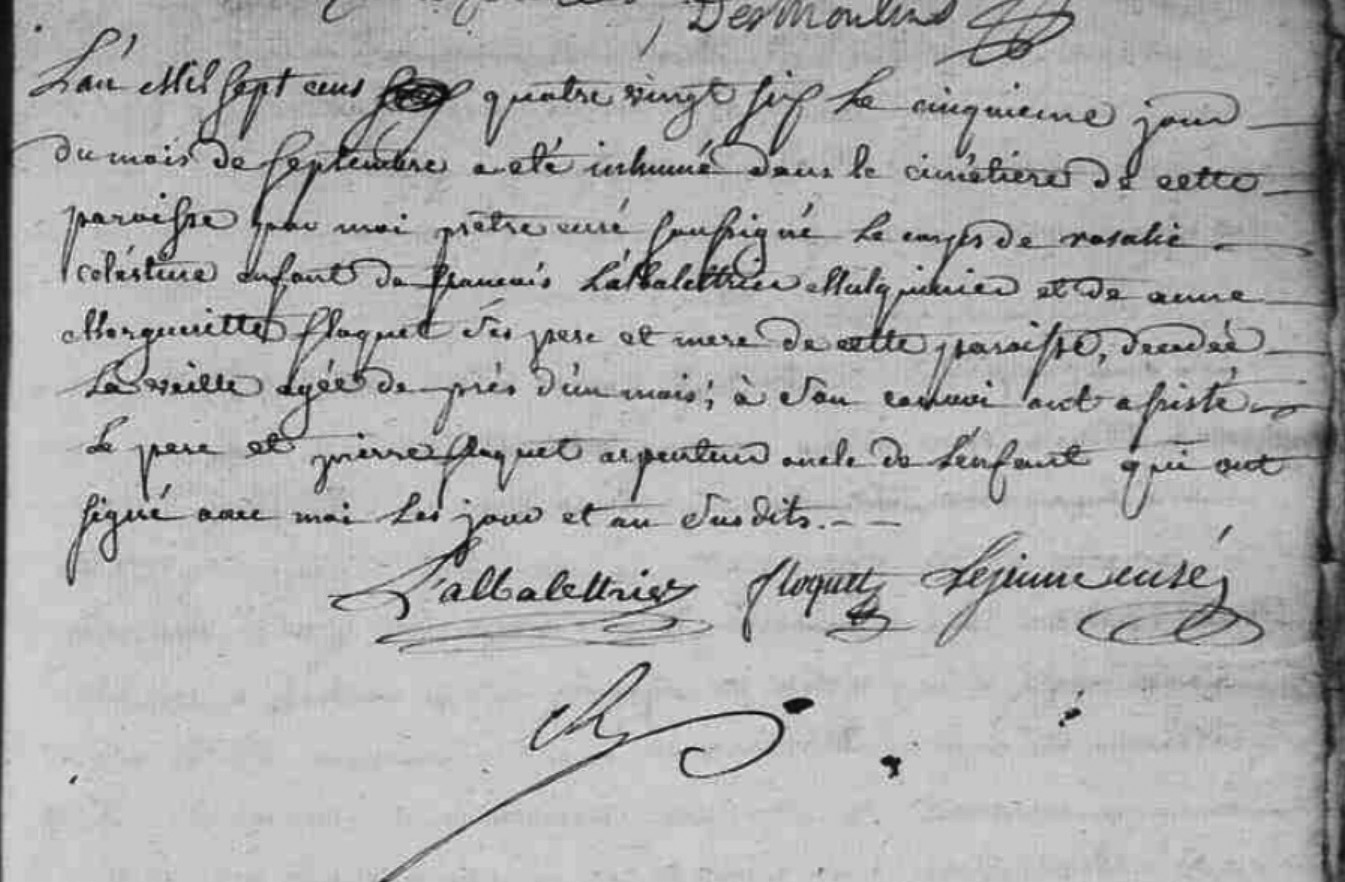 Desmoulins
L'an Mil sept cens quatre vingt six le cinquieme jour
du mois de septembre a eté inhumé dans le cimétiere de cette
paroisse par moi prêtre curé soussigné le corps de rosalie
celéstine enfant de francois L'albalettrier Mulquinier et de anne
Margueritte floquet ses pere et mere de cette paroisse, decedée
La veille agée de prés d'un mois; à son convoi ont assisté
le pere et pierre floquet arpenteur oncle de L'enfant qui ont
signé avec moi les jour et an susdits. - -
L'albalettrier floquet Lejeune curé